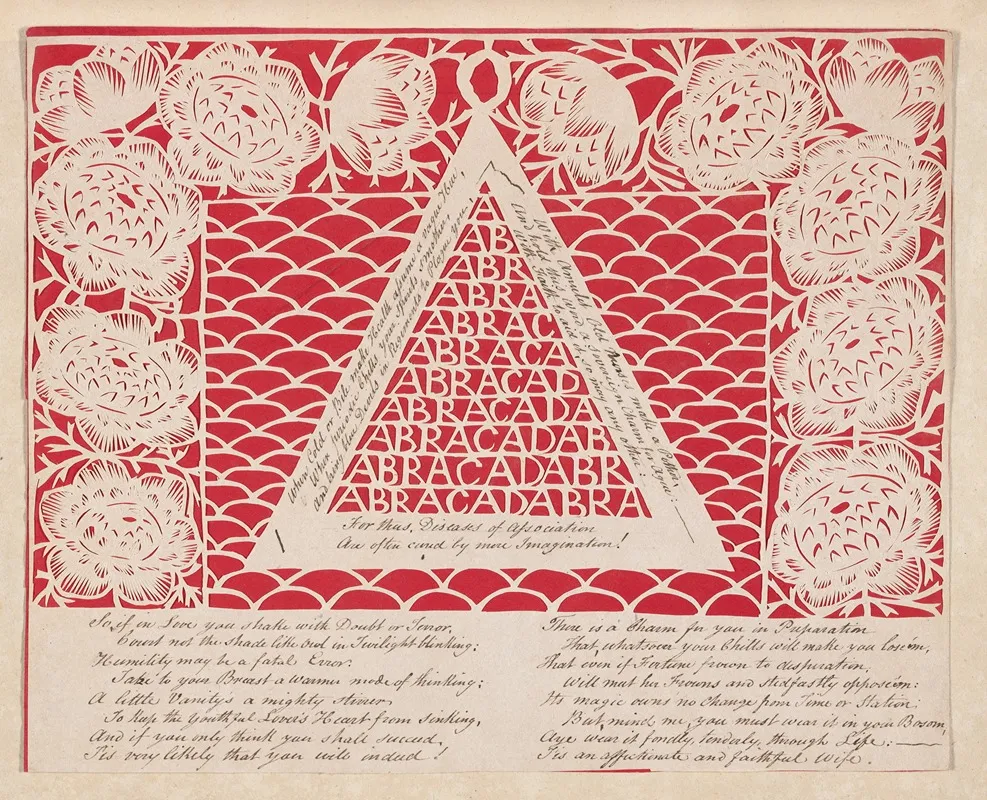 A
AB
ABR
ABRA
ABRAC
ABRACA
ABRACAD
ABRACADA
ABRACADAB
ABRACADABR
ABRACADABRA
When Cold or Wet make Health assume a
When ague-like Chills your spirits smother,
And bring blue Devils in Regiments to Plague you,
With Amulet Obi Nurses make a Pother,
And hold this word a sovereign Charm for Ague
With Faith to aid it they may any other
For thus, Diseases of Association
Are often cured by mere Imagination!
So, if in Love you shake with Doubt or Terror,
Court not the Shade like Owl in Twilight blinking;
Humility may be a fatal Error.
Take to your Breast a warmer mode of thinking;
A little Vanity's a mighty stirrer
To keep the Youthful Lover's Heart from sinking,
And if you only think you shall succeed,
'Tis very likely that you will indeed!
There is a Charm for you in Preparation
That, whatsoever your Chills will make you lose'em,
That even if Fortune frown to desperation,
Will meet her Frowns and stedfastly oppose'em:
Its magic owns no Change from Time or Station:
But mind me, you must wear it in your Bosom,
Aye wear it fondly, tenderly, through Life:—
'Tis an affectionate and faithful Wife.